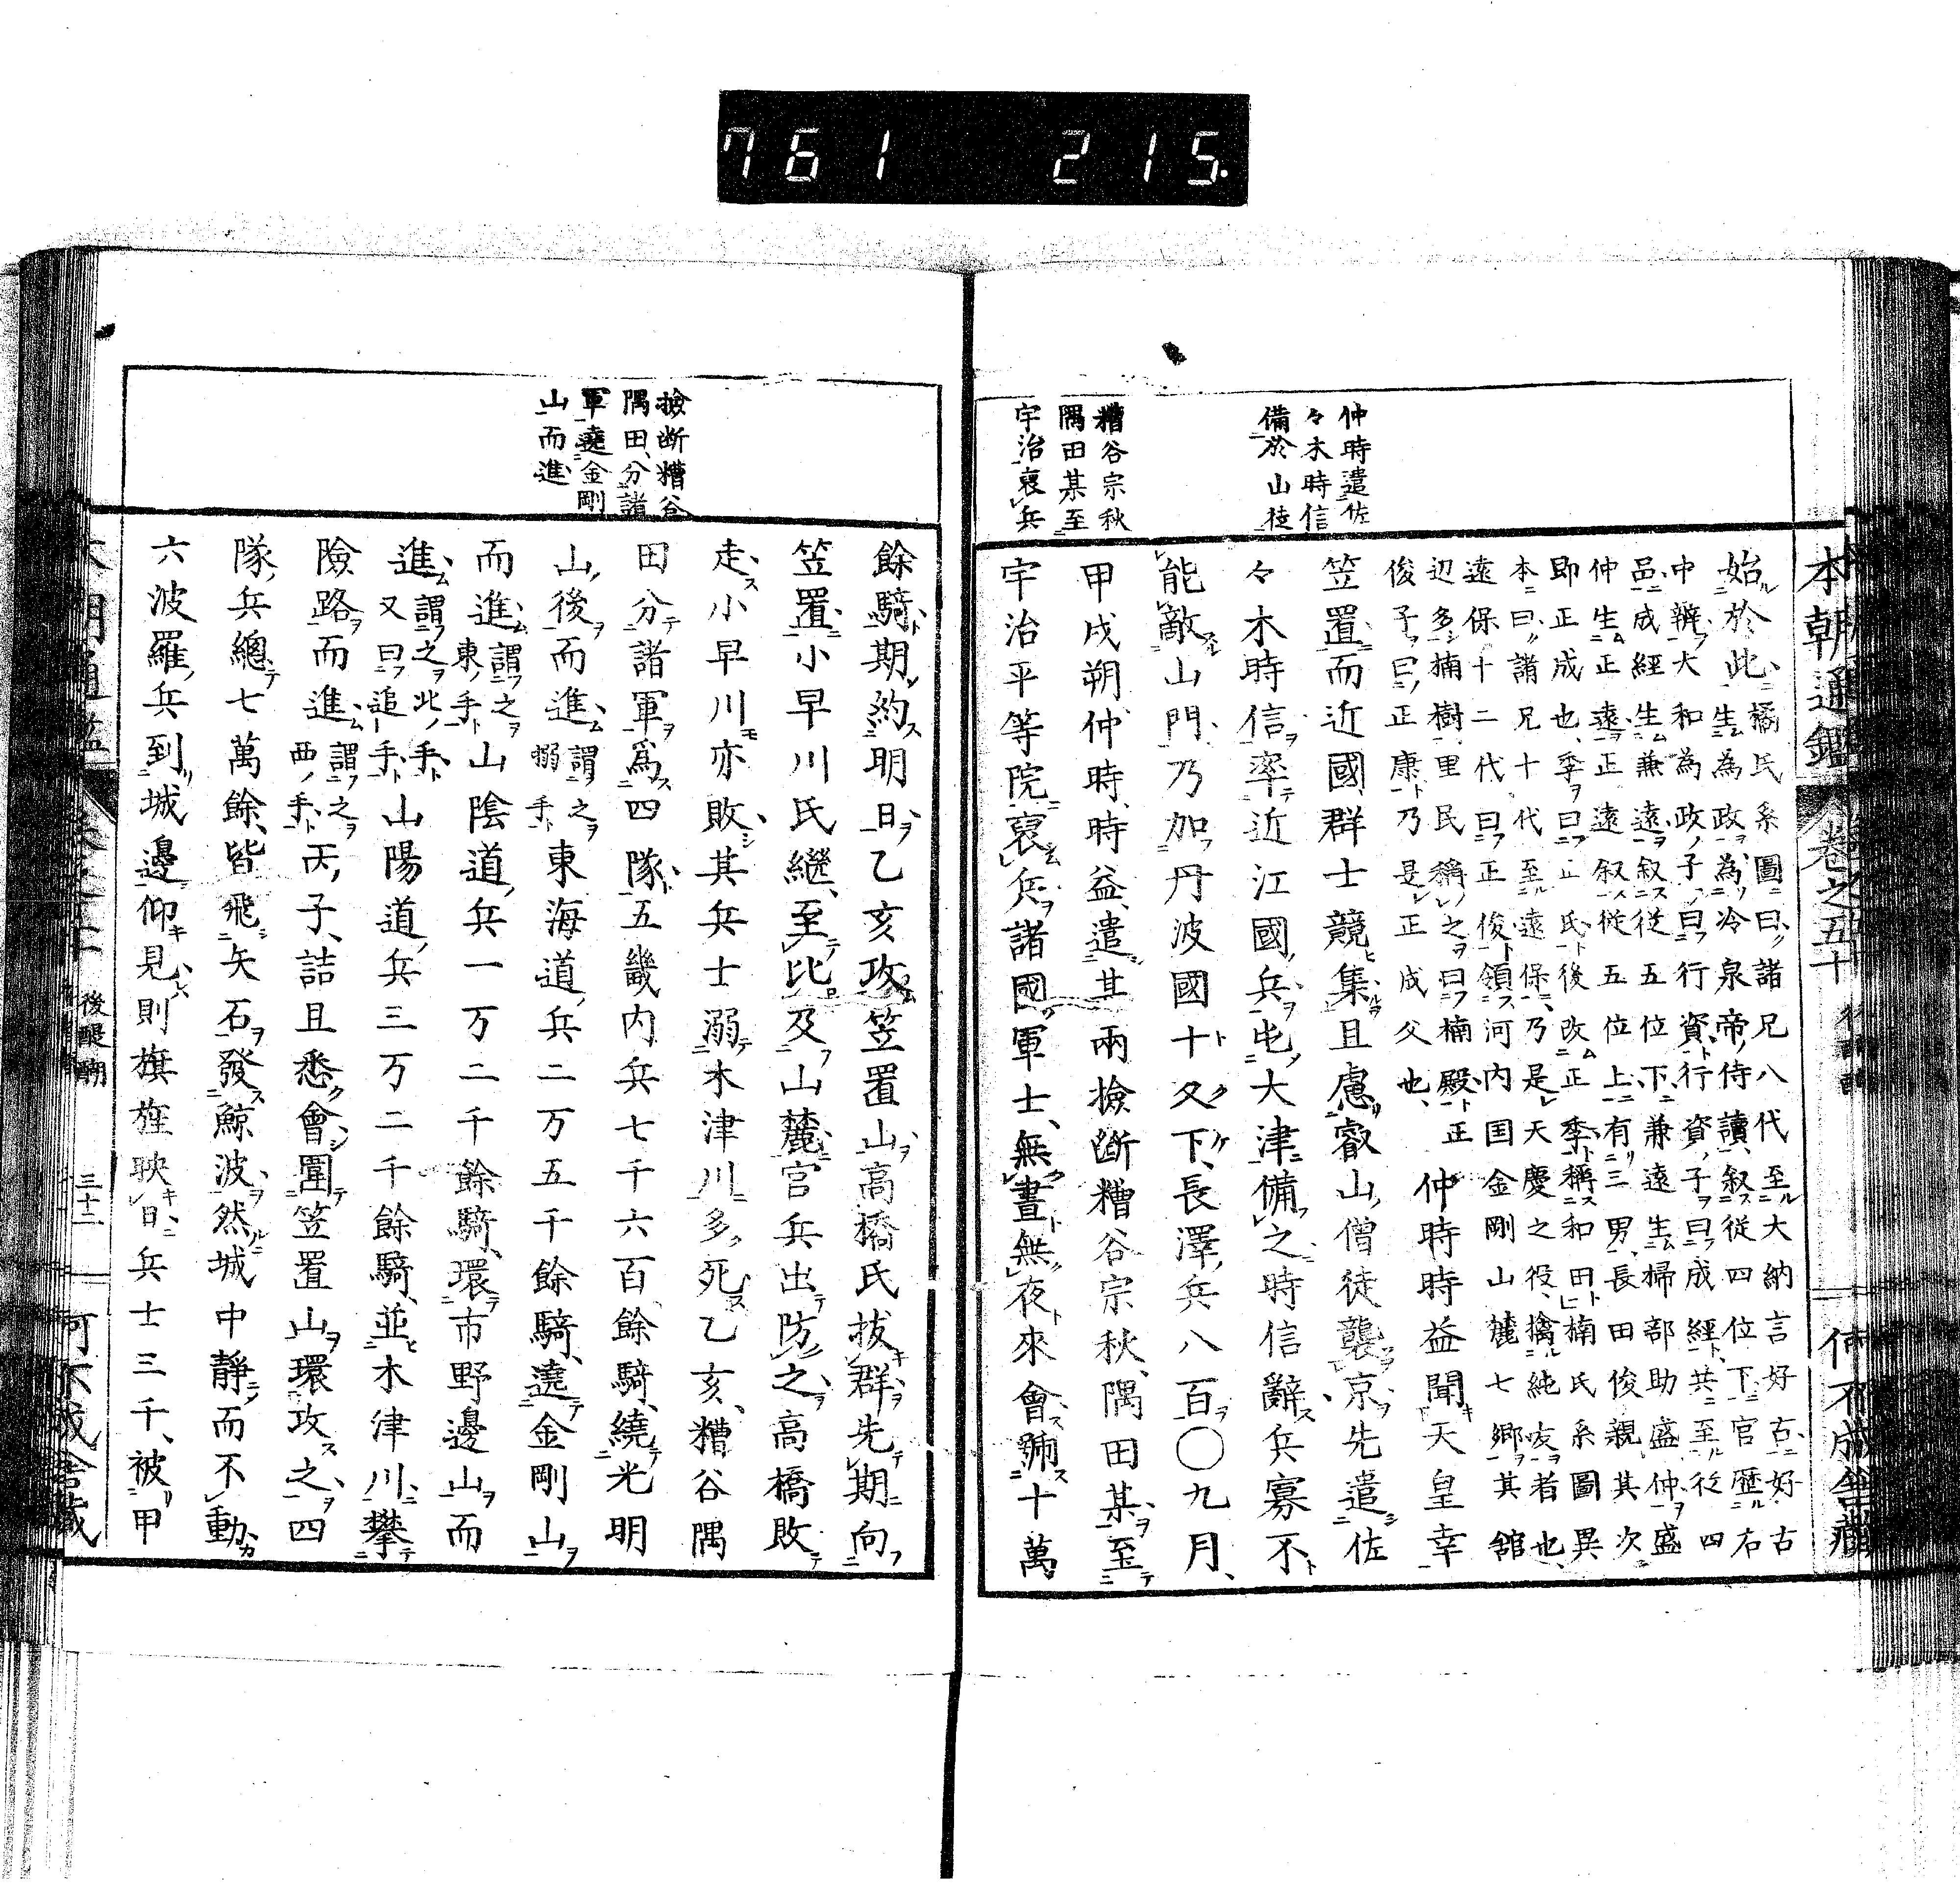 761 215.
本朝通鑑 卷之五十
仲時遣佐
々木時信
備於山徒
糟谷宗秋
隅田某至
宇治裒兵
始於此橘氏系圖曰諸兄八代至大納言好古好古
生為政為冷泉帝侍讀叙従四位下官歷右
中辨大和為政子曰行資行資子曰成經共至従四
品成經生兼遠叙従五位下兼遠生掃部助盛仲盛
仲生正遠正遠叙従五位上有三男長田俊親其次
即正成也季曰正氏後改正季稱和田楠氏系圖異
本曰諸兄十代至遠保乃是天慶之役擒純友者也
遠保十二代曰正俊領河内国金剛山麓七郷其舘
辺多楠樹里民稱之曰楠殿正
俊子曰正康乃是正成父也
仲時時益聞天皇幸
笠置而近國群士競集且慮叡山僧徒襲京先遣佐
々木時信率近江國兵屯大津備之時信辭兵寡不
能敵山門乃加丹波國十久下長澤兵八百〇九月
甲戌朔仲時時益遣其兩撿断糟谷宗秋隅田某至
宇治平等院裒兵諸國軍士無晝無夜來會號十萬
撿断糟谷
隅田分諸
軍遶金剛
山而進
餘騎期約明日乙亥攻笠置山高橋氏拔群先期向
笠置小早川氏繼至比及山麓官兵出防之高橋敗
走小早川亦敗其兵士溺木津川多死乙亥糟谷隅
田分諸軍爲四隊五畿内兵七千六百餘騎繞光明
山後而進謂之搦手東海道兵二万五千餘騎遶金剛山
而進謂之東手山陰道兵一万二千餘騎環市野邊山而
進謂之北手又曰追手山陽道兵三万二千餘騎並木津川攀
險路而進謂之西手丙子詰且悉會圍笠置山環攻之四
隊兵總七萬餘皆飛矢石發鯨波然城中靜而不動
六波羅兵到城邊仰見則旗旌映日兵士三千被甲
後醍醐
三十二